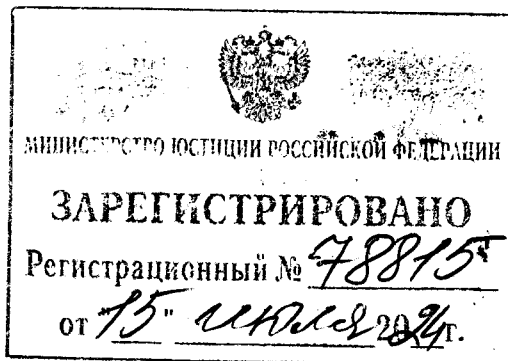 МИНИСТЕРСТВО ЮСТИЦИИ РОССИЙСКОЙ ФЕДЕРАЦИИ
ЗАРЕГИСТРИРОВАНО
Регистрационный № 78815
от "15" июля 2024г.